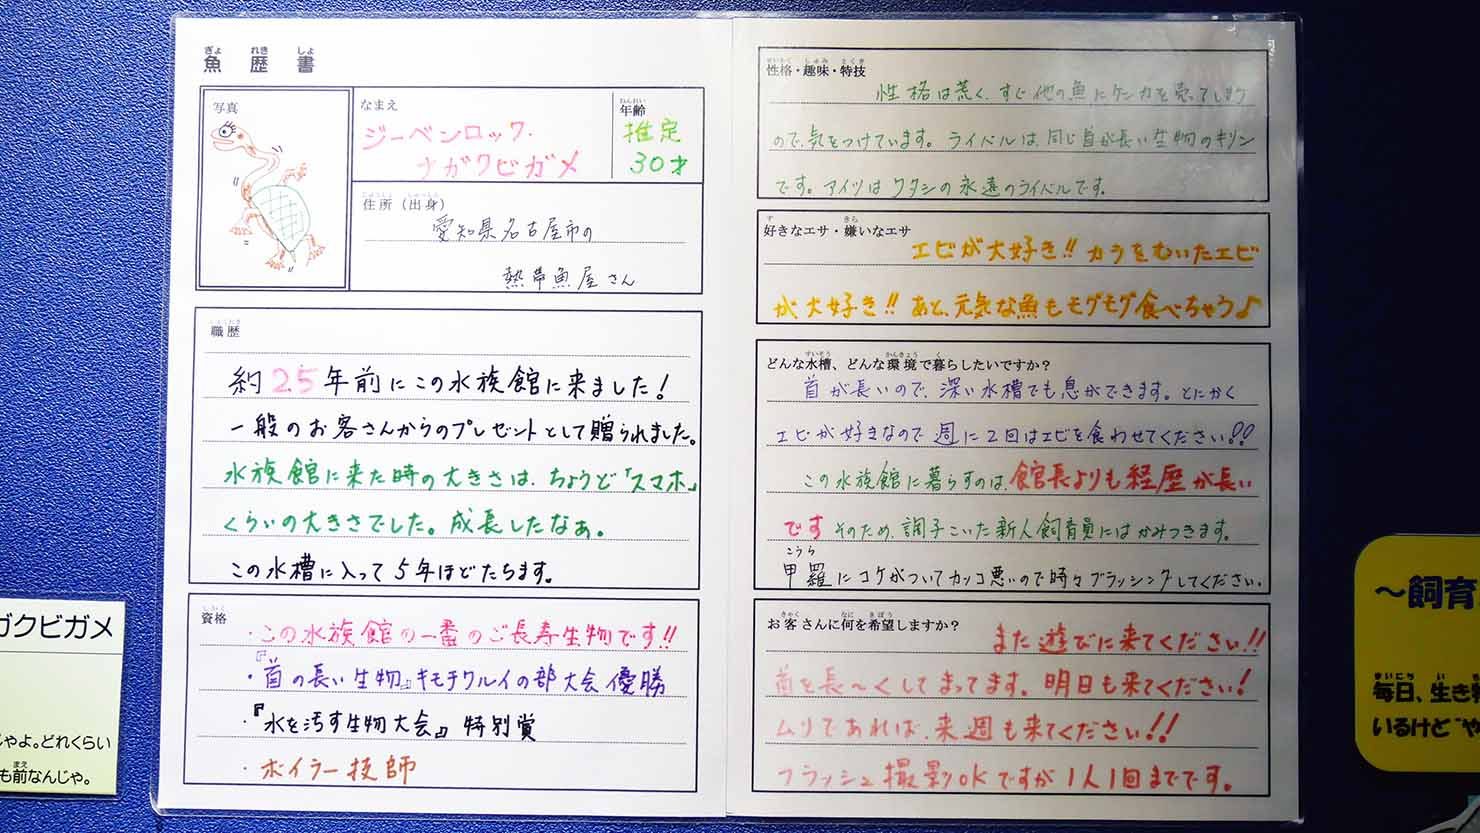 魚歴書
ぎょ れき しょ
写真
なまえ
ジーベンロック・
ナガクビガメ
ねんれい
年齢
推定
30才
じゅうしょ しゅっしん
住所(出身)
愛知県名古屋市の
熱帯魚屋さん
しょくれき
職歴
約25年前にこの水族館に来ました!
一般のお客さんからのプレゼントとして贈られました。
水族館に来た時の大きさは、ちょうど「スマホ」
くらいの大きさでした。成長したなぁ。
この水槽に入って5年ほどたちます。
しかく
資格
・この水族館の一番のご長寿生物です!!
・『首の長い生物』キモチワルイの部大会優勝
・『水を汚す生物大会』特別賞
・ボイラー技師
せいかく しゅみ とくぎ
性格・趣味・特技
性格は荒く、すぐ他の魚にケンカを売ってしまう
ので、気をつけています。ライバルは、同じ首が長い生物のキリン
です。アイツはワタシの永遠のライバルです。
す きら
好きなエサ・嫌いなエサ
エビが大好き!!カラをむいたエビ
が、大好き!!あと、元気な魚もモグモグ食べちゃう♪
すいそう かんきょう く
どんな水槽、どんな環境で暮らしたいですか?
首が長いので、深い水槽でも息ができます。とにかく
エビが好きなので週に2回はエビを食わせてください!!
この水族館に暮らすのは、館長よりも経歴が長い
です そのため、調子こいた新人飼育員にはかみつきます。
こうら
甲羅にコケがついてカッコ悪いので時々ブラッシングしてください。
きゃく なに きぼう
お客さんに何を希望しますか?
また遊びに来てください!!
首を長〜くしてまってます。明日も来てください!
ムリであれば、来週も来てください!!
フラッシュ撮影OKですが1人1回までです。
ガクビガメ
じゃよ。どれくらい
まえ
も前なんじゃ。
〜飼育
まいにち い
毎日、生き
いるけど"や